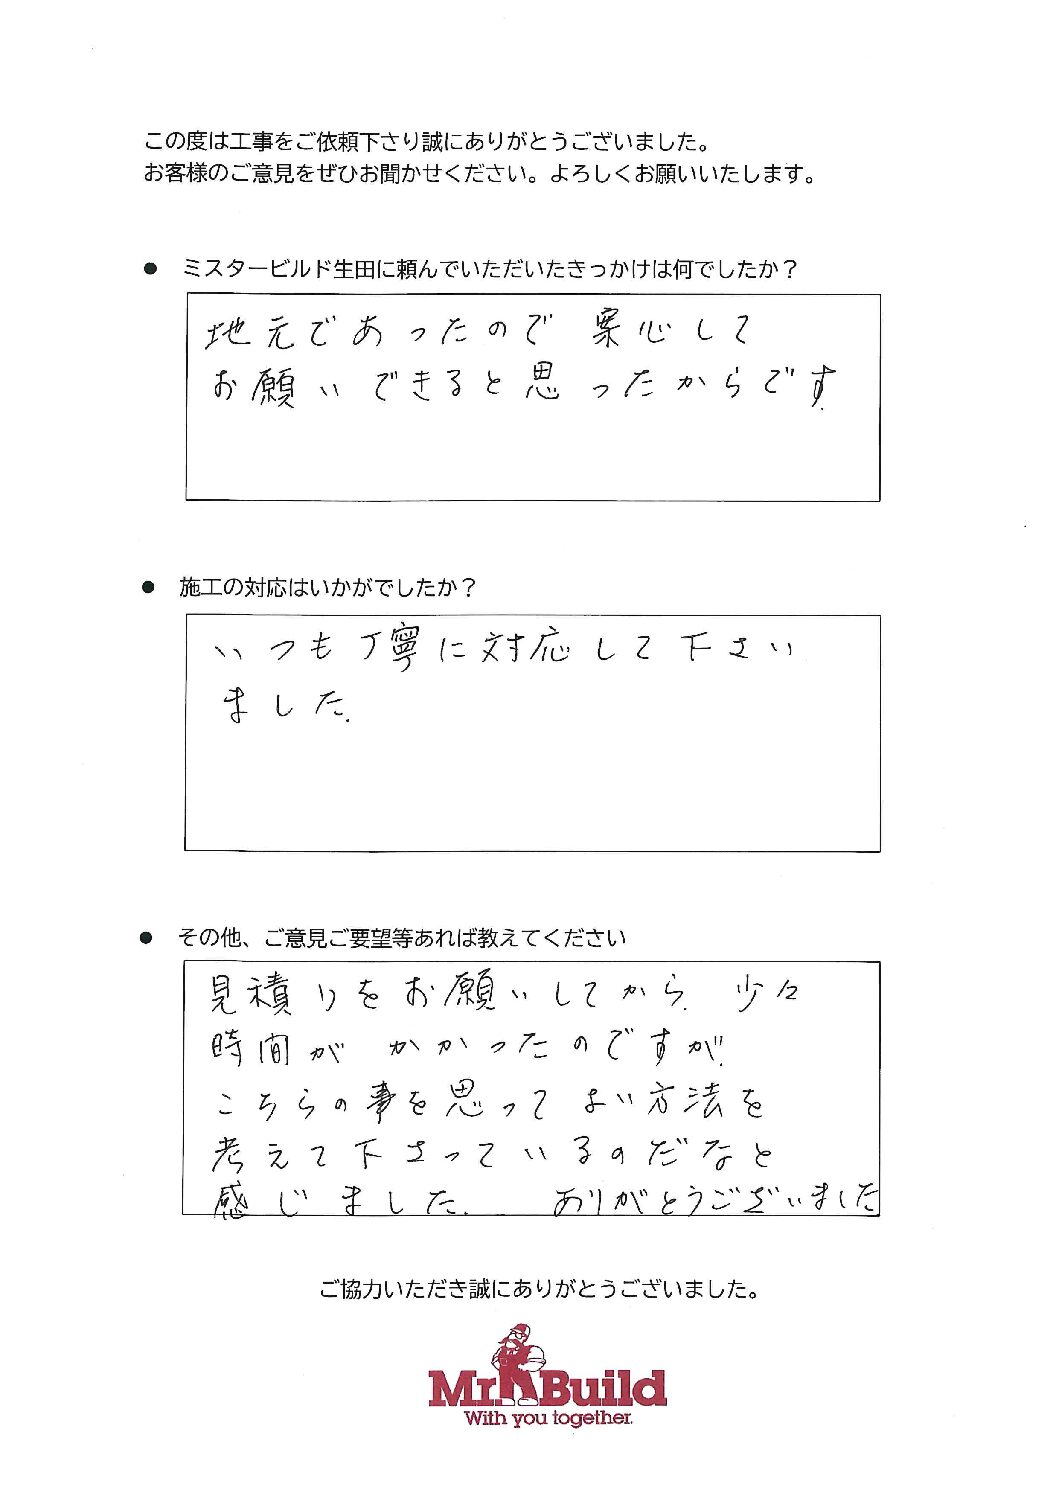 この度は工事をご依頼下さり誠にありがとうございました。
お客様のご意見をぜひお聞かせください。よろしくお願いいたします。
● ミスタービルド生田に頼んでいただいたきっかけは何でしたか？
地元であったので 案心して
お願いできると思ったからです.
● 施工の対応はいかがでしたか？
いつも丁寧に対応して下さい
ました.
● その他、ご意見ご要望等あれば教えてください
見積りをお願いしてから. 少々
時間が かかったのですが.
こちらの事を思って よい方法を
考えて下さっているのだなと
感じました. ありがとうございました
ご協力いただき誠にありがとうございました。
Mr Build
With you together.